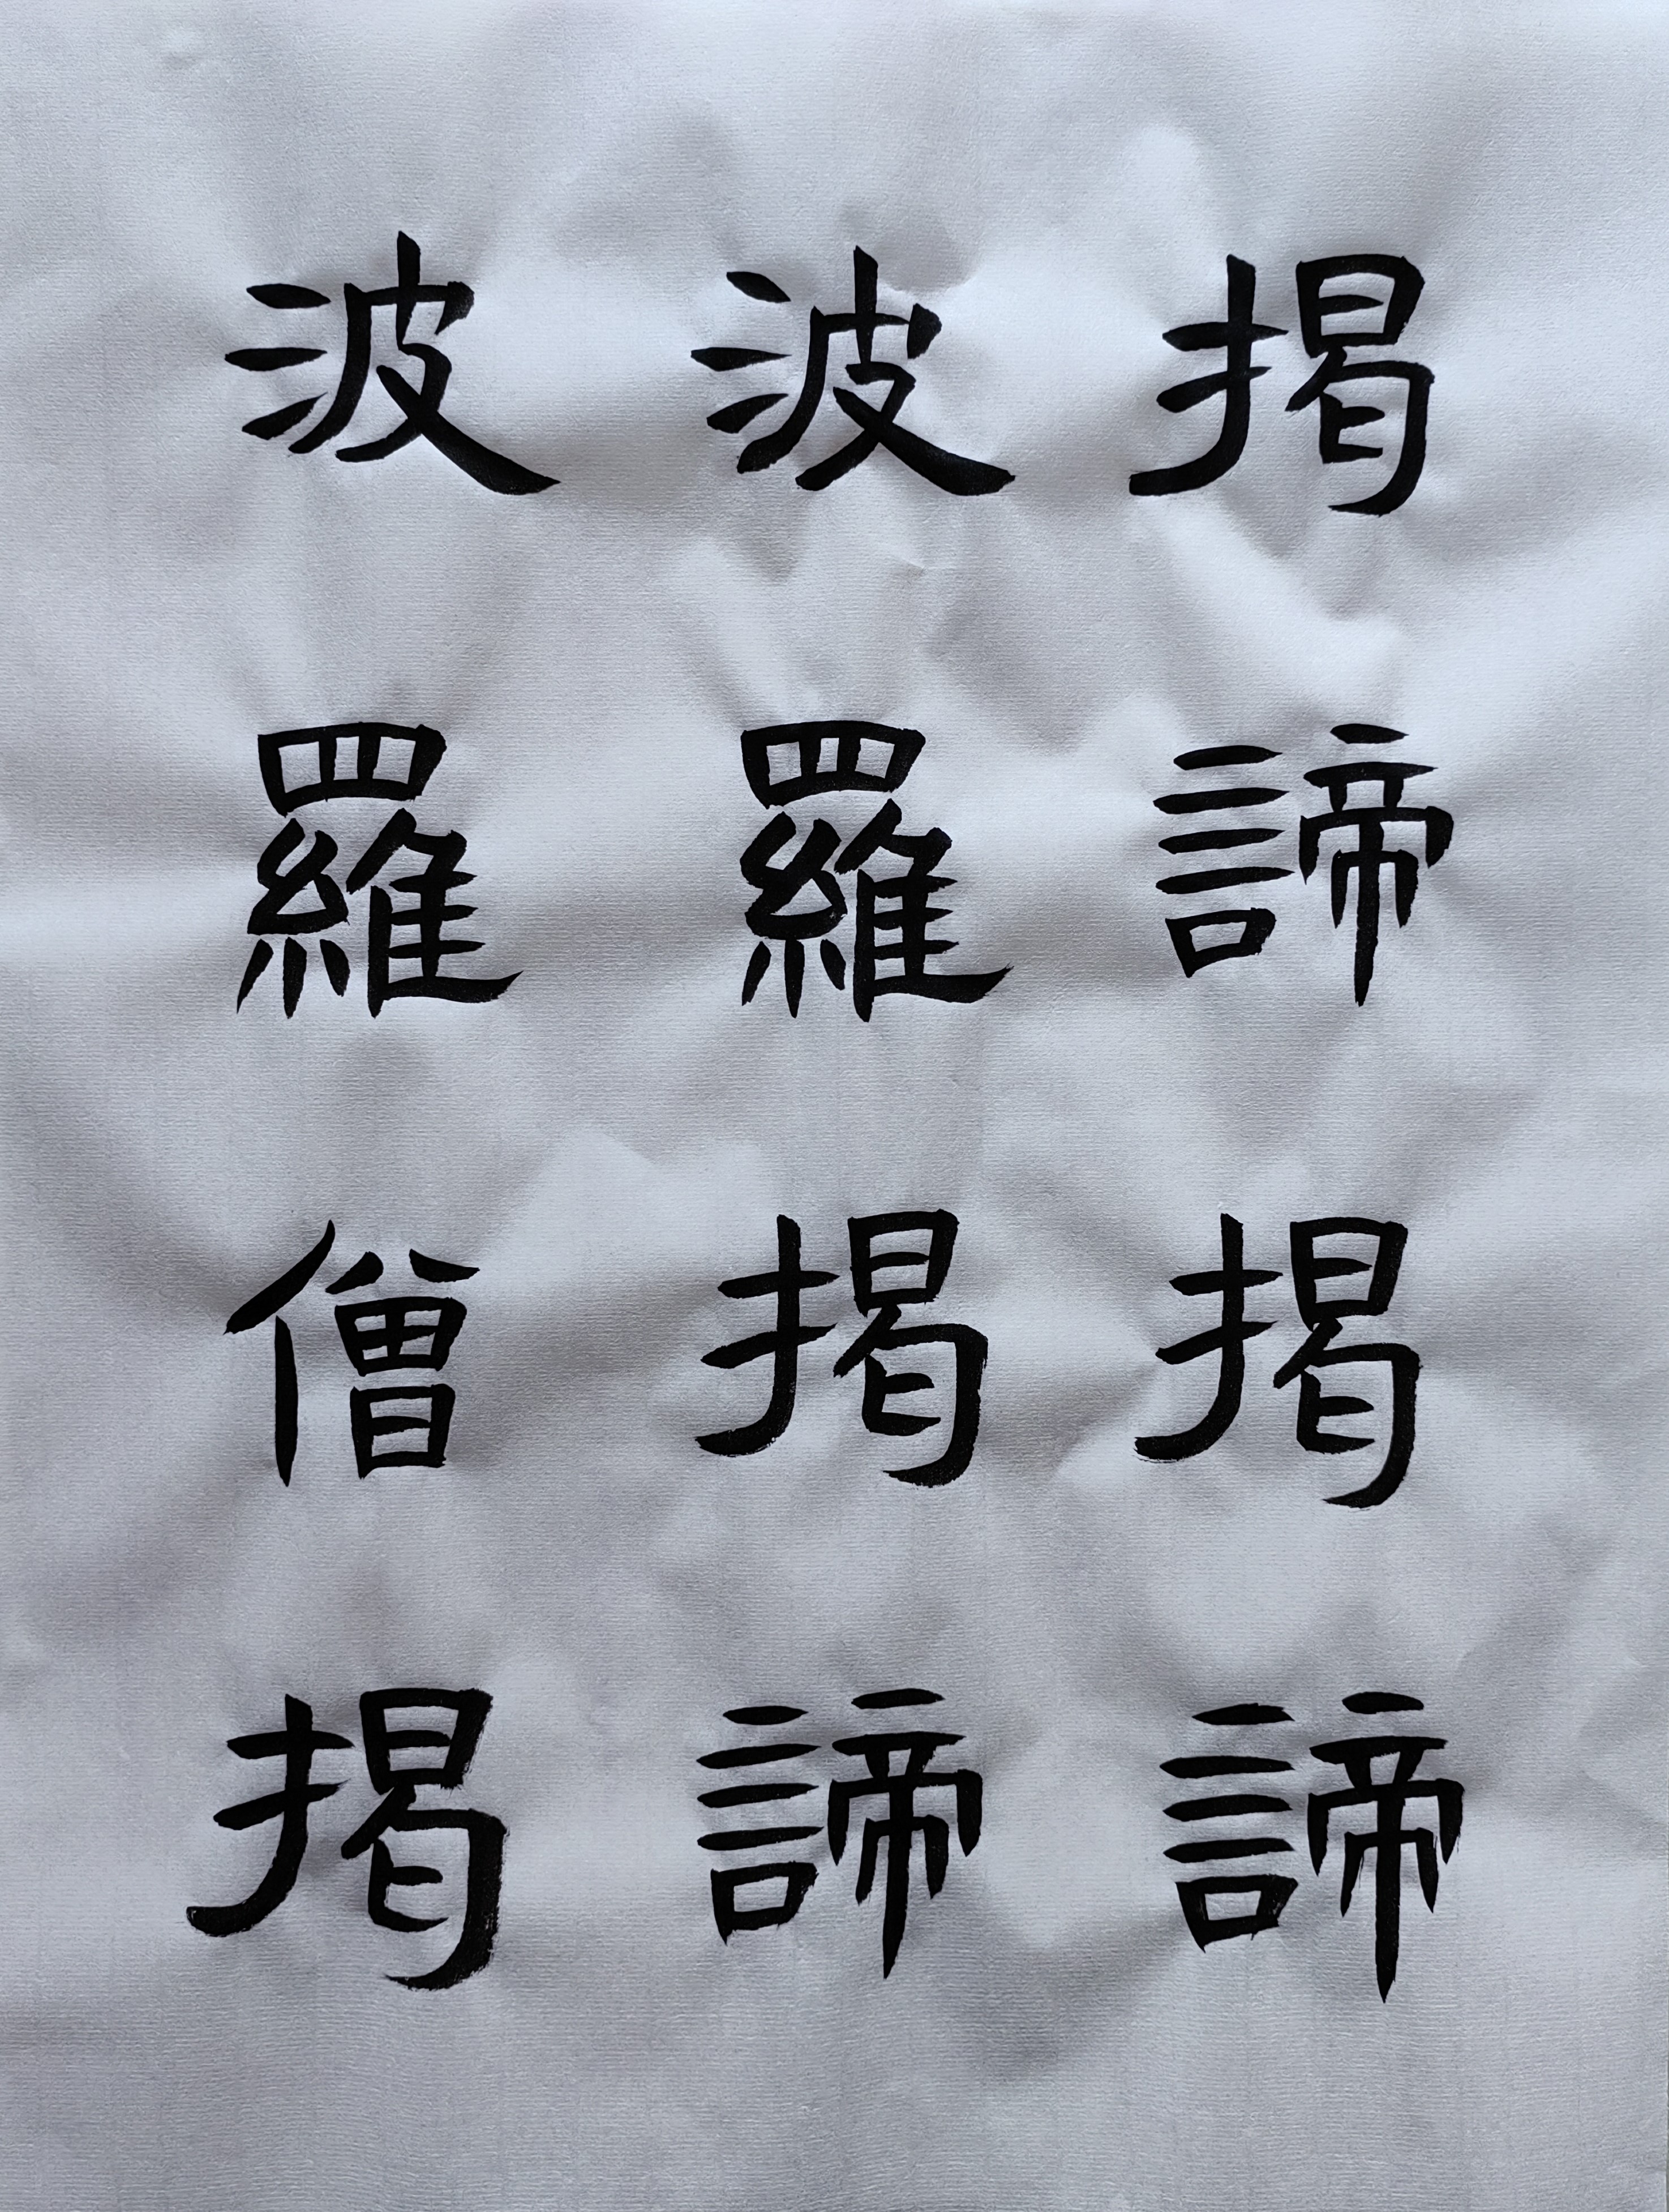 揭諦揭諦
波羅揭諦
波羅僧揭